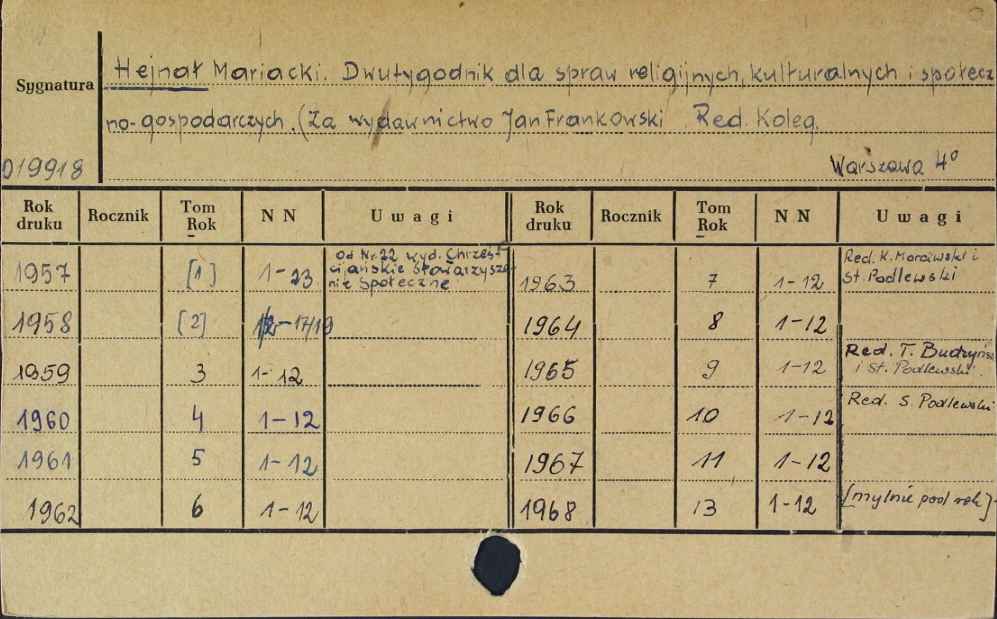 Sygnatura
Hejnał Mariacki. Dwutygodnik dla spraw religijnych, kulturalnych i społecz
no-gospodarczych. (Za wydawnictwo Jan Frankowski Red. Koleg.
019918 Warszawa 4°
Rok druku Rocznik Tom Rok N N Uwagi Rok druku Rocznik Tom Rok N N Uwagi
1957 [1] 1-23 Od Nr. 22 wyd. Chrześcijańskie Stowarzyszenie Społeczne 1963 7 1-12 Red. K. Morawski i St. Podlewski
1958 [2] -17/19 1964 8 1-12
1959 3 1-12 1965 9 1-12 Red. T. i St. Podlewski
1960 4 1-12 1966 10 1-12 Red. S. Podlewski
1961 5 1-12 1967 11 1-12
1962 6 1-12 1968 13 1-12 [mylnie pod rok]